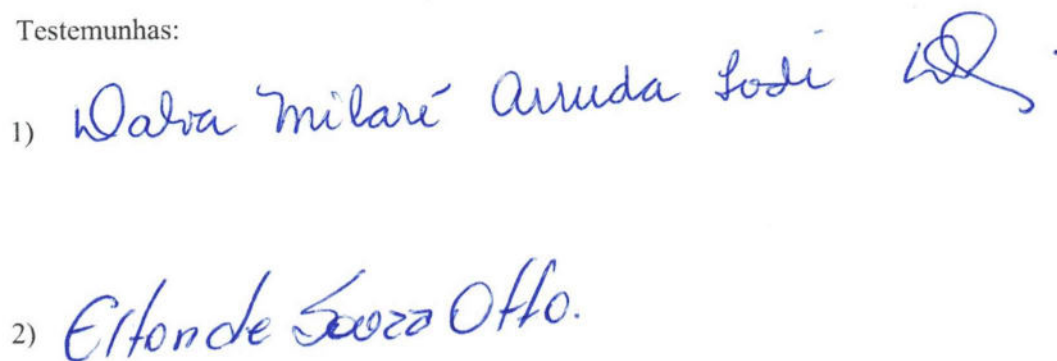 Testemunhas:
1) Dalva Milaré Arruda Sodi
2) Elton de Souza Otto.